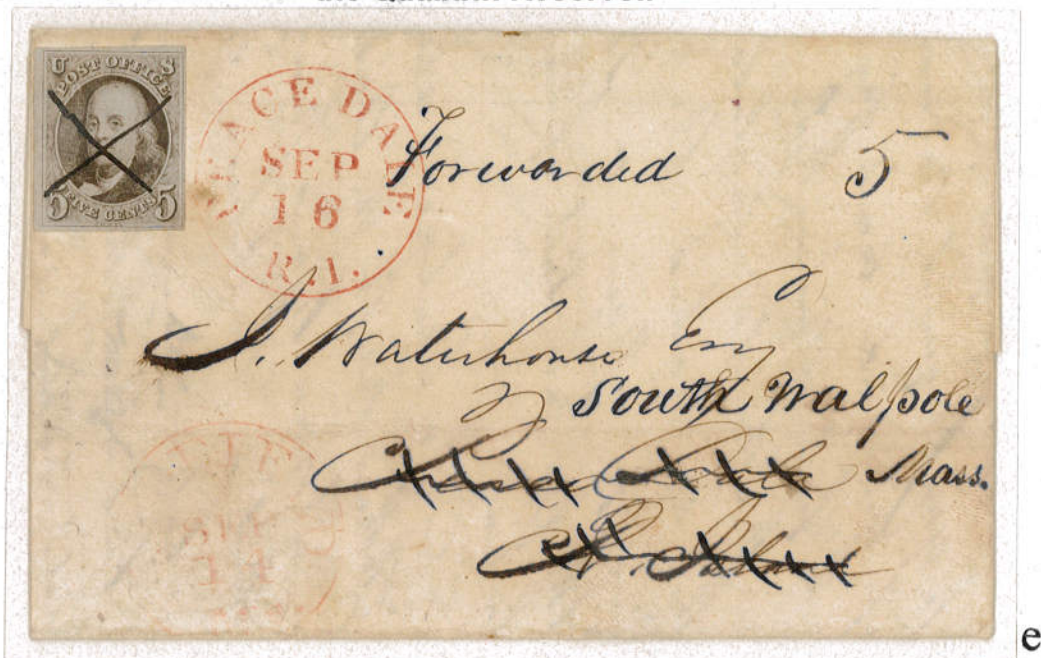 U S
POST OFFICE
5 FIVE CENTS 5
PEACE DALE
SEP
16
R.I.
Forwarded 5
J. Waterhouse Esq
South Walpole
Mass.
SEP
14
e